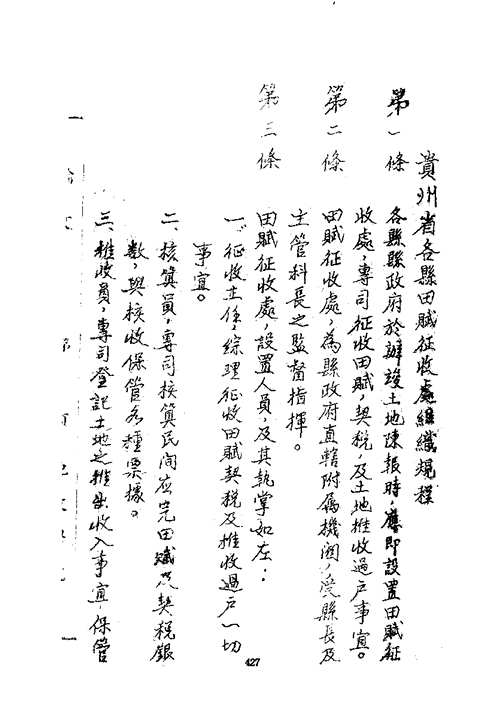 貴州省各縣田賦征收處組織規程
第一條　各縣縣政府於辦竣土地陳報時，應即設置田賦征
收處，專司征收田賦，契稅，及土地推收過戶事宜。
第二條　田賦征收處，為縣政府直轄附屬機關，受縣長及
主管科長之監督指揮。
第三條　田賦征收處，設置人員，及其執掌如左：
一、征收主任，綜理征收田賦契稅及推收過戶一切
事宜。
二、核算員，專司核算民间应完田賦及契稅銀
数，與核收保管各種票據。
三、推收員，專司登記土地之推出收入事宜，保管
427